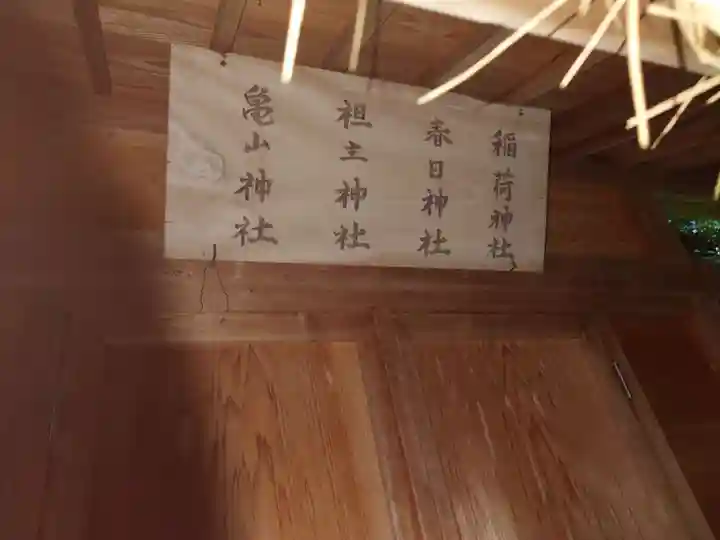 稲荷神社
春日神社
祖主神社
亀山神社